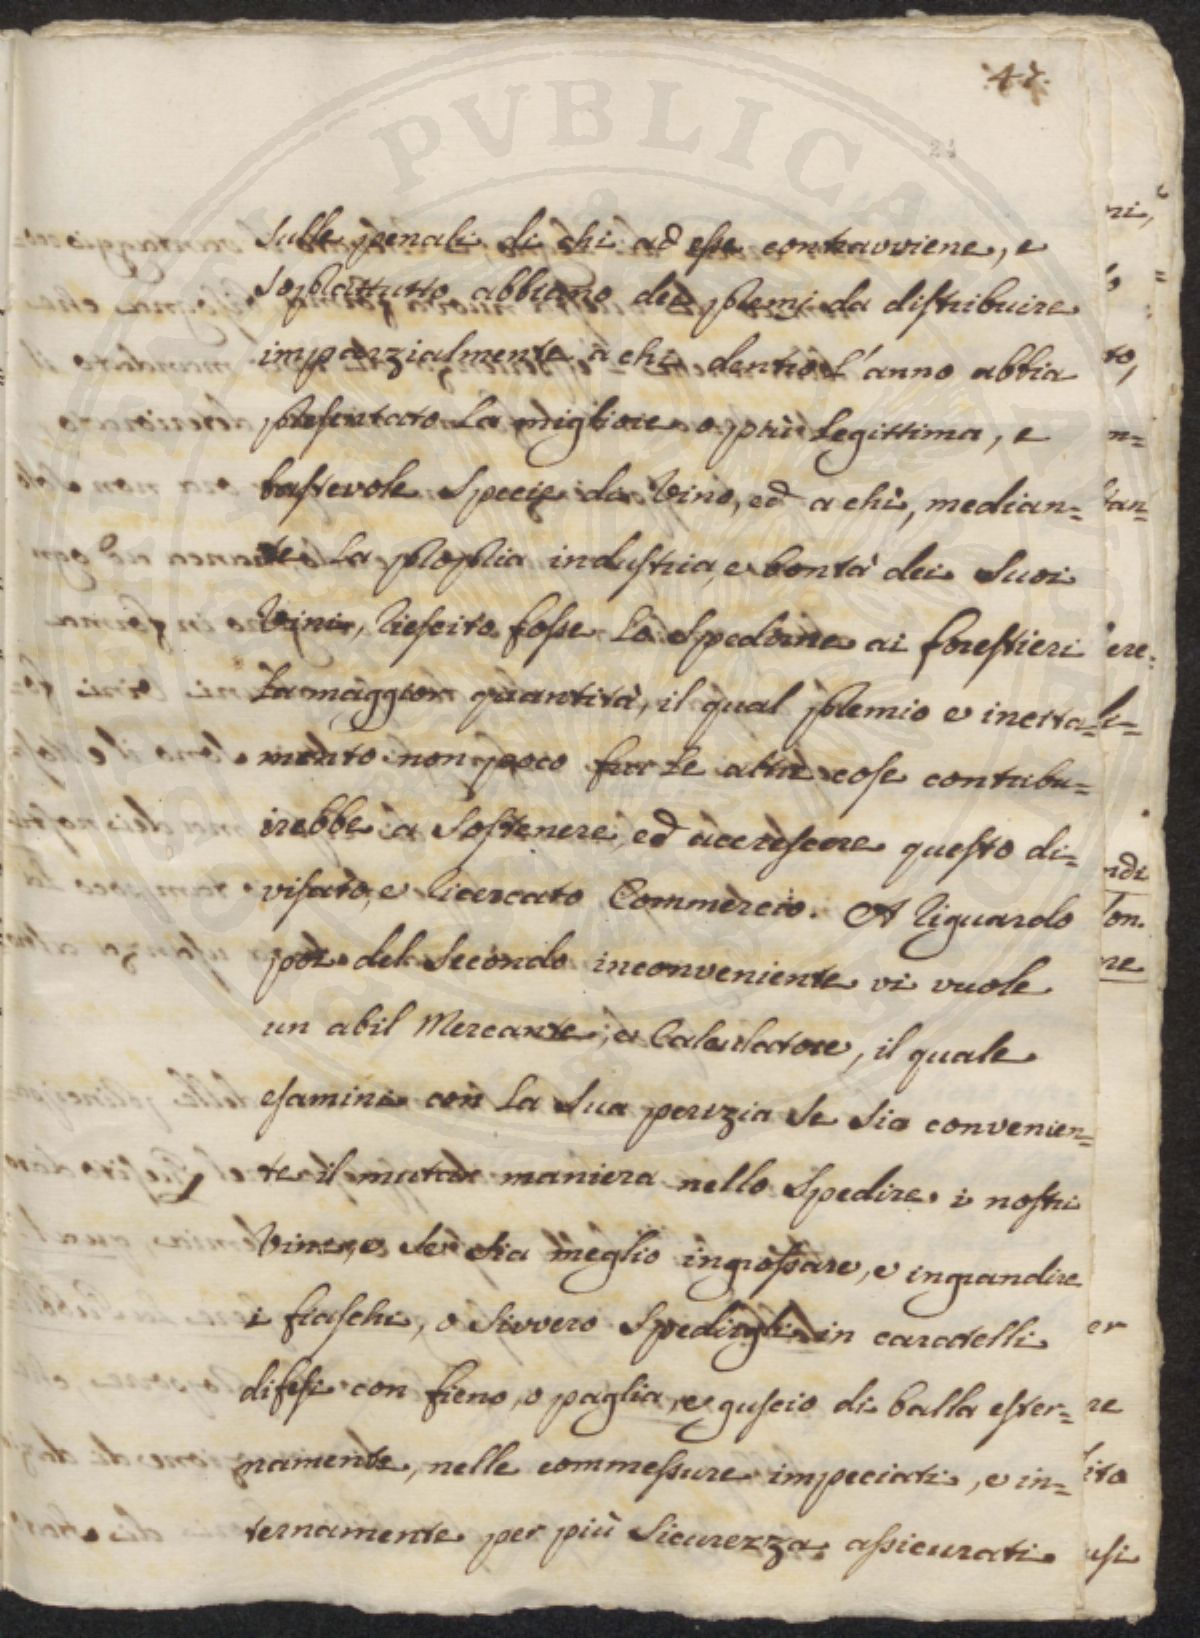 47.
24
PVBLICA
sulle penali di chi ad esse contravviene, e
soprattutto abbiano dei premj da distribuire
imparzialmente a chi dentro l'anno abbia
presentato la migliore o più legittima, e
bastevole specie da Vino, ed a chi, median=
te la propria industria, e bontà dei suoi
Vini, riescito fosse lo spedirne ai forestieri
la maggior quantità, il qual premio e incita=
mento non poco fur le altre cose contribu=
irebbe a sostenere, ed accrescere questo di=
visato, e ricercato Commercio. A riguardo
poi del secondo inconveniente vi vuole
un abil Mercante, e Calculatore, il quale
esamini con la sua perizia se sia convenien=
te il mutar maniera nello spedire i nostri
Vini, e se sia meglio ingrossare, e ingrandire
i fiaschi, o sivvero spedirgli in caratelli
difesi con fieno, o paglia, e guscio di balla ester=
namente, nelle commessure impeciati, e in=
ternamente per più sicurezza assicurati